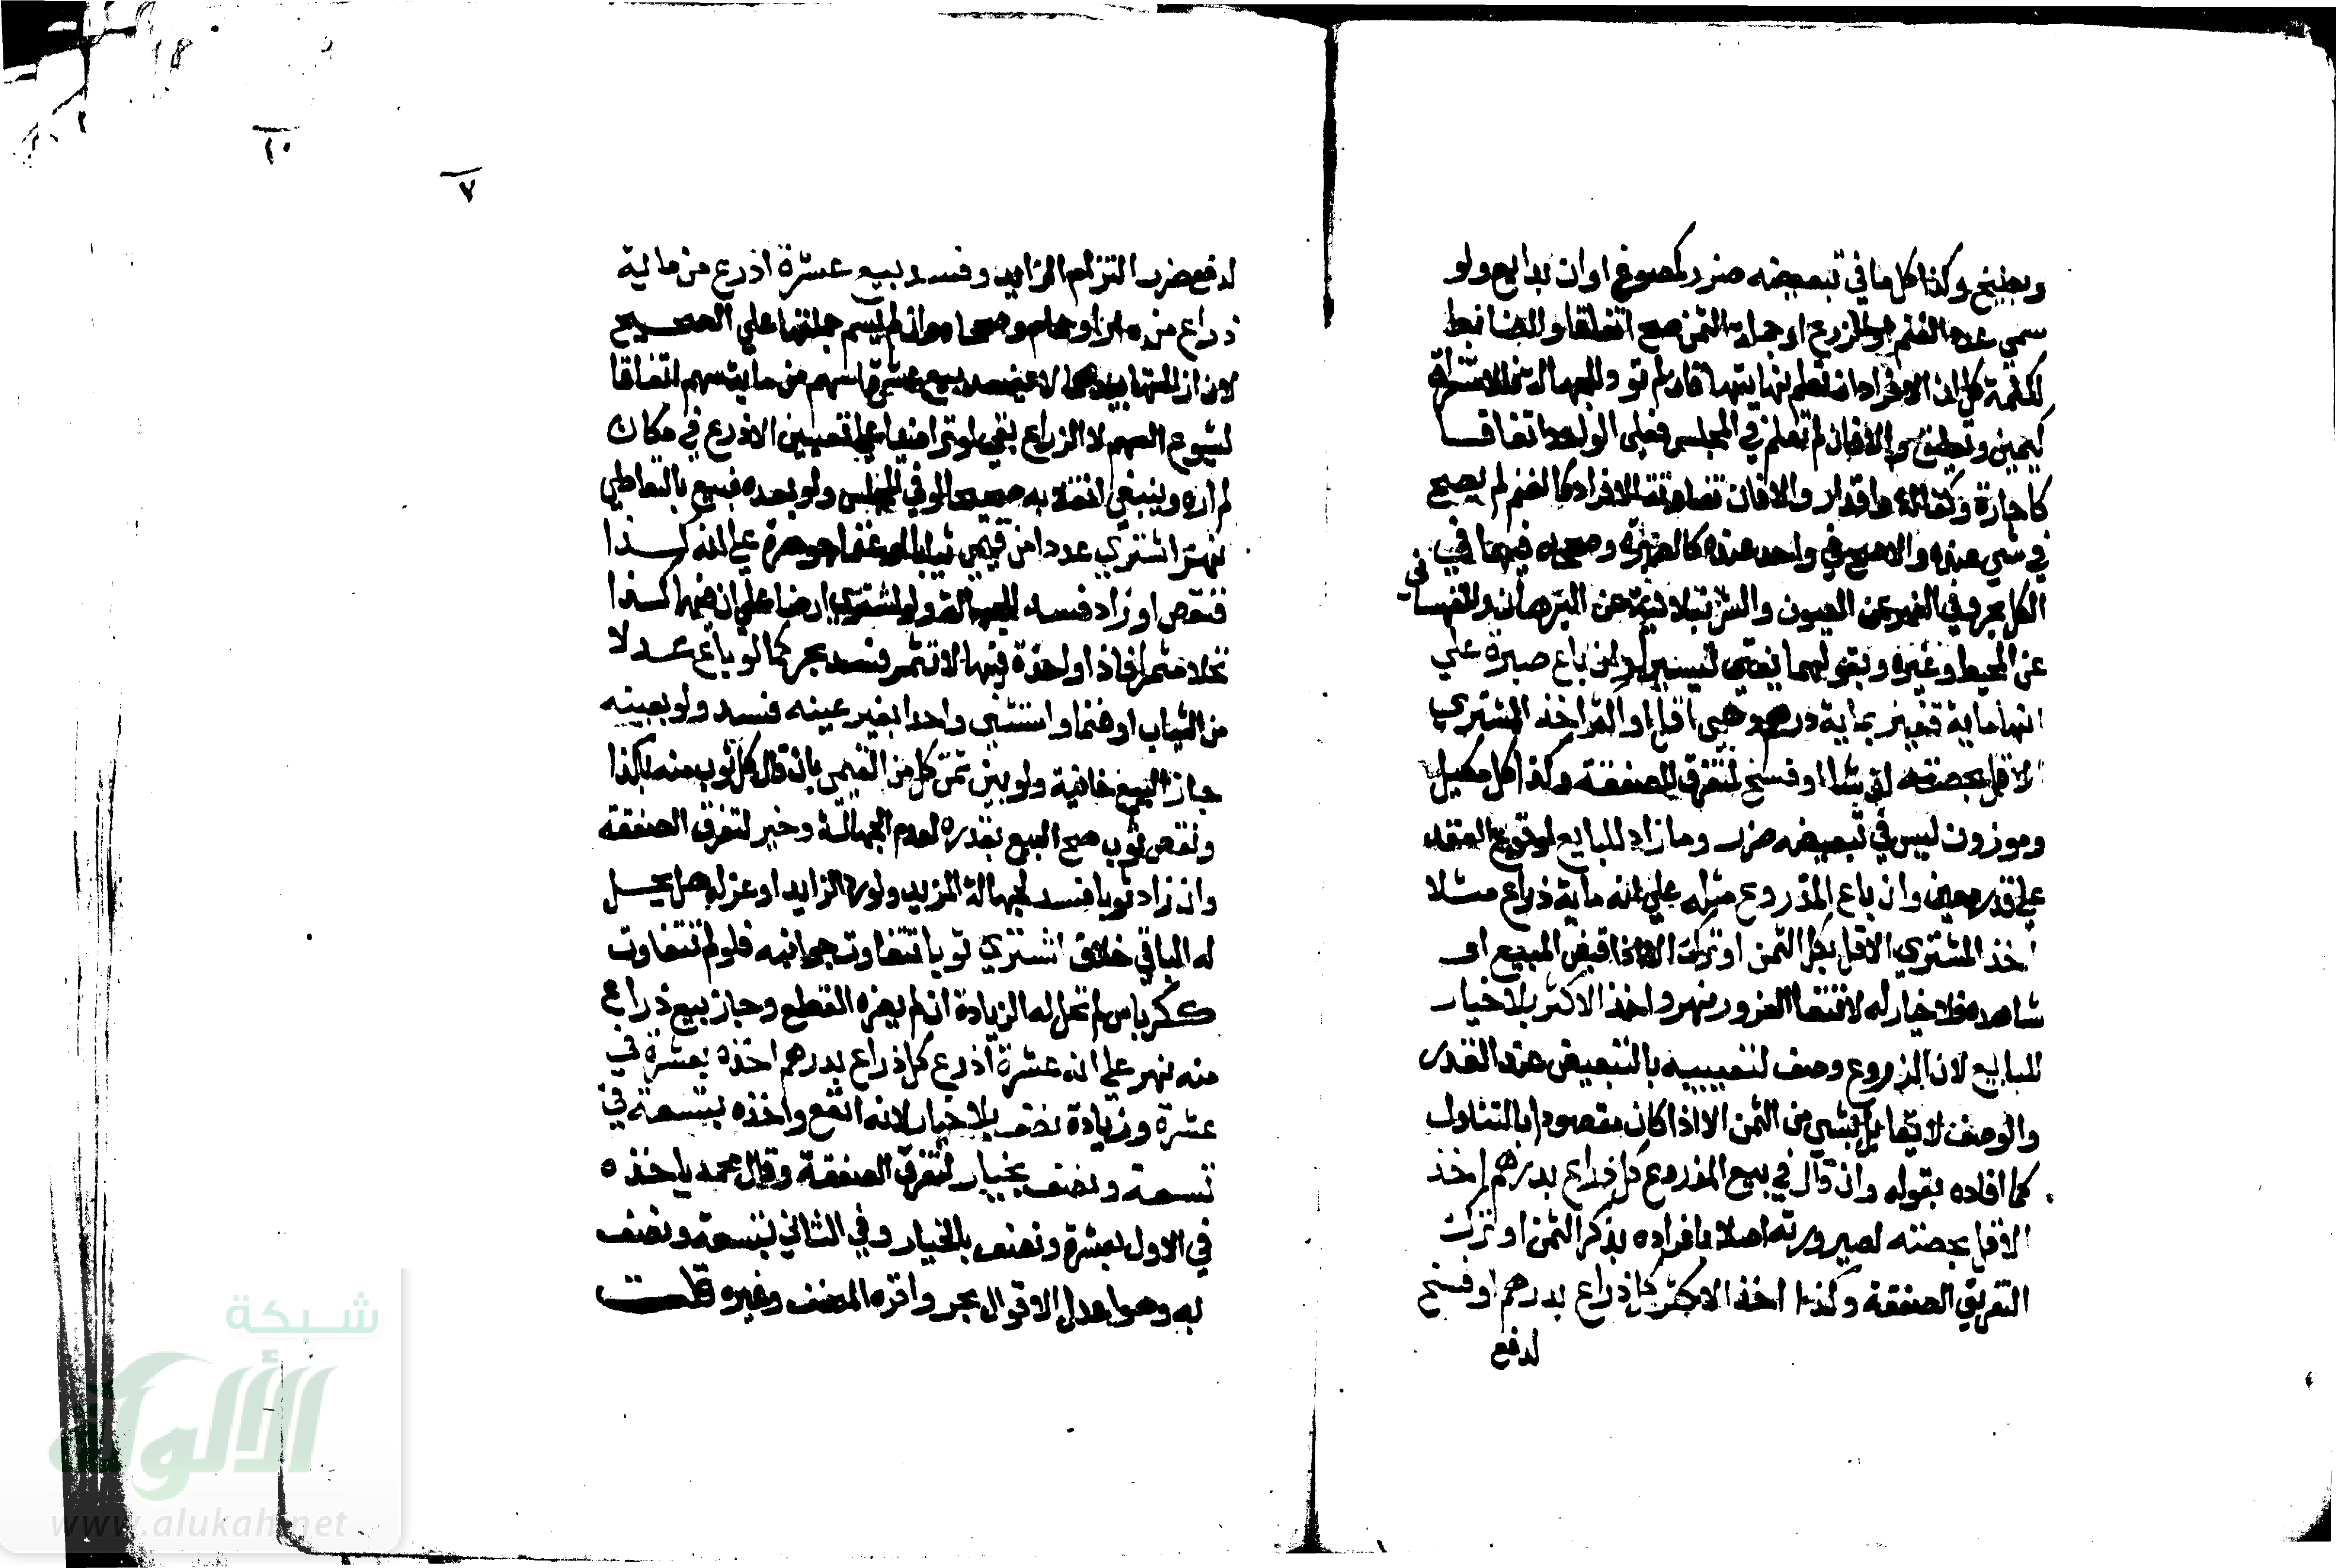 وبطيخ وكذا كل ما في تبعيضه ضرر كمصوغ اوان بدايع ولو
سمي عدد الغنم او الذرع او جملة الثمن صح اتفاقا والضابط
لكلمة كل ان الافراد ان تعلم نهايتها فان لم تود للجهالة فللاستغراق
كيمين وتعليق والا فان لم تعلم في المجلس فعلى الواحد اتفاقا
كاجارة وكفالة واقرار والا فان تفاوتت الافراد كالغنم لم يصح
في شي عنده والا صح في واحد عنده كالصبرة وصححاه فيهما في
الكل بحر وفي النهر عن العيون والشرنبلالية عن البرهان والقهستاني
عن المحيط وغيره وبقولهما يفتى تيسيرا وان باع صبرة على
انها ماية قفيز بماية درهم وهي اقل او اكثر اخذ المشتري
الاقل بحصته ان شاا وفسخ لتفرق الصفقة وكذا كل مكيل
وموزون ليس في تبعيضه ضرر وما زاد للبايع لوقوع العقد
على قدر معين وان باع المذروع مثله على انه ماية ذراع مثلا
اخذ المشتري الاقل بكل الثمن او ترك الا اذا قبض المبيع او
شاهده فلا خيار له لانتفا الغرور نهر واخذ الاكثر بلا خيار
للبايع لان الذروع وصف لتعيبه بالتبعيض ضد القدر
والوصف لا يقابل بشي من الثمن الا اذا كان مقصودا بالتناول
كما افاده بقوله وان قال في بيع المذروع كل ذراع بدرهم اخذ
الاقل بحصته لصيرورته اصلا بافراده بذكر الثمن او ترك
لتفريق الصفقة وكذا اخذ الاكثر كل ذراع بدرهم او فسخ
لدفع
لدفع ضرر التزام الزايد وفسد بيع عشرة اذرع من ماية
ذراع من دار او حمام وصححاه وان لم يسم جملتها على الصحيح
لان ازالتها بيدهما لا يفسد بيع عشرة اسهم من ماية سهم اتفاقا
لشيوع السهم لا الذراع بقي لو تراضيا على تعيين الاذرع في مكان
لم اره وينبغي انقلابه صحيحا لو في المجلس ولو بعده فبيع بالتعاطي
نهر اشترى عددا من قيمي ثيابا او غنما جوهرة على انه كذا
فنقص او زاد فسد للجهالة ولو اشترى ارضا على ان فيها كذا
نخلا مثمرا فاذا واحدة فيها لا تثمر فسد بحر كما لو باع عدلا
من الثياب او غنما واستثنى واحدا بغير عينه فسد ولو بعينه
جاز البيع خانية ولو بين ثمن كل من القيمي بان قال كل ثوب منه بكذا
ونقص ثوب صح البيع بقدره لعدم الجهالة وخير لتفرق الصفقة
وان زاد ثوبا فسد لجهالة المزيد ولو رد الزايد او عزله هل يحل
له الباقي خلاف اشترى ثوبا تتفاوت جوانبه فلو لم تتفاوت
ككرباس لم تحل له الزيادة ان لم يضره القطع وجاز بيع ذراع
منه نهر على انه عشرة اذرع كل ذراع بدرهم اخذه بعشرة في
عشرة وزيادة نصف بلا خيار لانه انفع واخذه بتسعة في
تسعة ونصف بخيار لتفرق الصفقة وقال محمد ياخذه
في الاول بعشرة ونصف بالخيار وفي الثاني بتسعة ونصف
به وهو اعدل الاقوال بحر واقره المصنف وغيره قلت
١٠
٧
شبكة
الألوكة
www.alukah.net